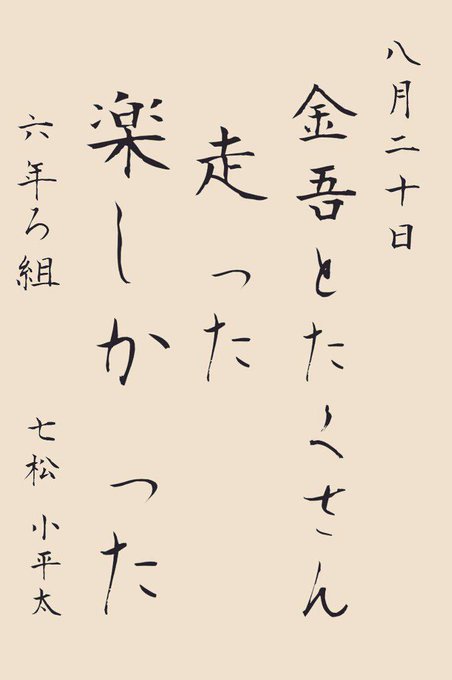 八月二十日
金吾とたくさん
走った
楽しかった
六年ろ組 七松 小平太